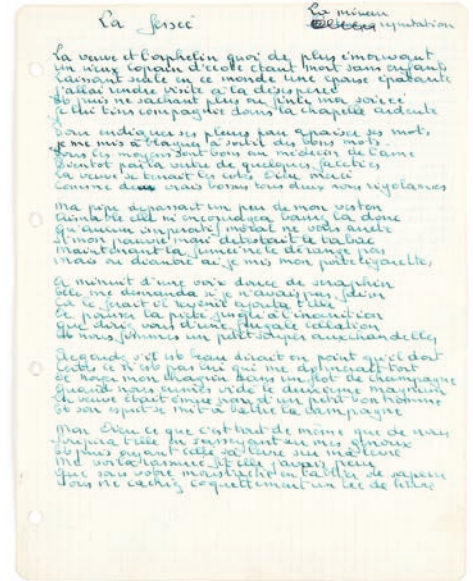 La fessée
La mineur
réputation
La veuve et l'orphelin quoi de plus émouvant
un vieux copain d'école étant mort sans enfants
Laissant seule en ce monde une épouse épatante
j'allai rendre visite à la désespérée
Et puis ne sachant plus où finir ma soirée
Je lui tins compagnie dans la chapelle ardente
Pour endiguer ses pleurs pour apaiser ses maux
je me mis à blaguer à sortir des bons mots
Tous les moyens sont bons au médecin de l'âme
Bientôt par la vertu de quelques facéties
La veuve se tenait les côtes Dieu merci
Comme deux vrais bossus tous deux nous rigolâmes
Ma pipe dépassait un peu de mon veston
Aimable elle m'encouragea bourrez la donc
Qu'aucun impératif moral ne vous arrête
Si mon pauvre mari détestait le tabac
Maintenant la fumée ne le dérange pas
Mais où diantre ai-je mis mon porte cigarettes
A minuit d'une voix douce de séraphin
Elle me demanda si je n'avais pas faim
Ça le ferait il revenir ajouta t elle
De pousser la piété jusqu'à l'inanition
Que diriez vous d'une frugale collation
Et nous fîmes un petit souper aux chandelles
Regardez s'il est beau dirait on point qu'il dort
Certes ce n'est pas lui qui me donnerait tort
De noyer mon chagrin dans un flot de champagne
Quand nous eûmes vidé le deuxième magnum
La veuve était émue nom d'un petit bonhomme
Et son esprit se mit à battre la campagne
Mon Dieu ce que c'est tout de même que de nous
Soupira t elle en s'asseyant sur mes genoux
Et puis ayant collé sa lèvre sur ma lèvre
Me voilà rassurée fit elle j'avais peur
Que sous votre moustache en tablier de sapeur
Vous ne cachiez coquettement un bec de lièvre